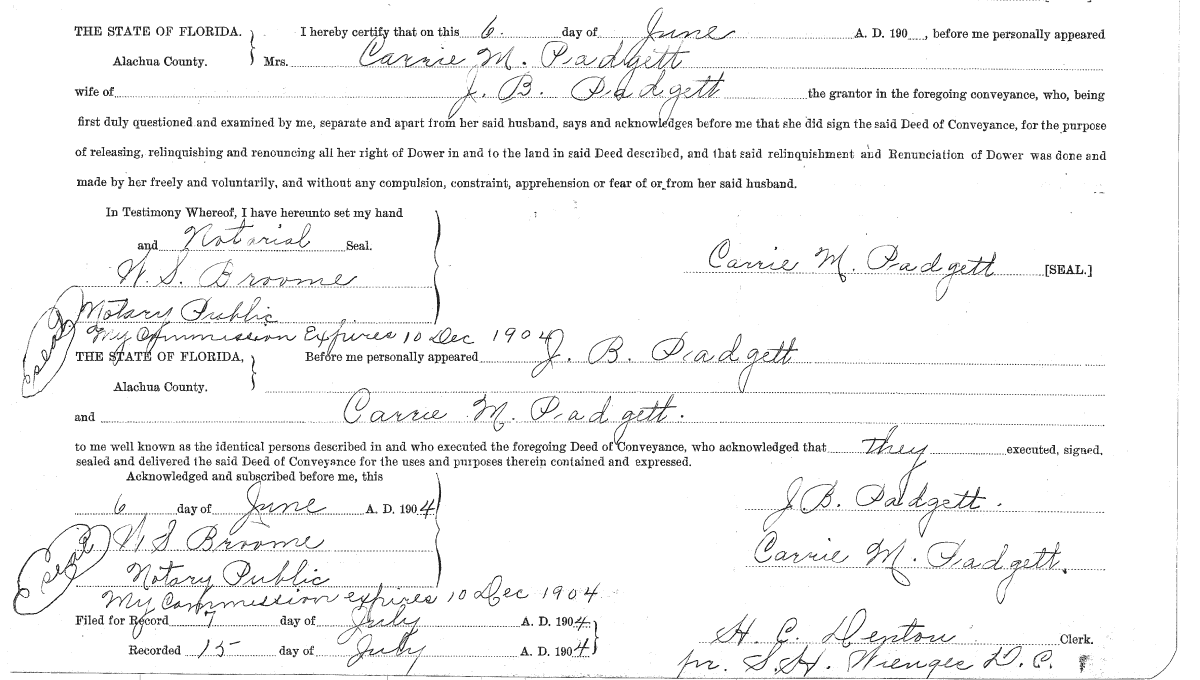 THE STATE OF FLORIDA. I hereby certify that on this 6. day of June A. D. 190 , before me personally appeared
Alachua County. Mrs. Carrie M. Padgett
wife of J. B. Padgett the grantor in the foregoing conveyance, who, being
first duly questioned and examined by me, separate and apart from her said husband, says and acknowledges before me that she did sign the said Deed of Conveyance, for the purpose
of releasing, relinquishing and renouncing all her right of Dower in and to the land in said Deed described, and that said relinquishment and Renunciation of Dower was done and
made by her freely and voluntarily, and without any compulsion, constraint, apprehension or fear of or from her said husband.
In Testimony Whereof, I have hereunto set my hand
and Notarial Seal.
Carrie M. Padgett [SEAL.]
W. S. Broome
Notary Public
seal My Commission Expires 10 Dec 1904
THE STATE OF FLORIDA, Before me personally appeared J. B. Padgett
Alachua County.
and Carrie M. Padgett.
to me well known as the identical persons described in and who executed the foregoing Deed of Conveyance, who acknowledged that they executed, signed,
sealed and delivered the said Deed of Conveyance for the uses and purposes therein contained and expressed.
Acknowledged and subscribed before me, this
6 day of June A. D. 1904
J B. Padgett.
seal W S Broome
Carrie M. Padgett.
Notary Public
My Commission expires 10 Dec 1904
Filed for Record 7 day of July A. D. 1904
H. C. Denton Clerk.
Recorded 15 day of July A. D. 1904
pr. S. H. D. C.